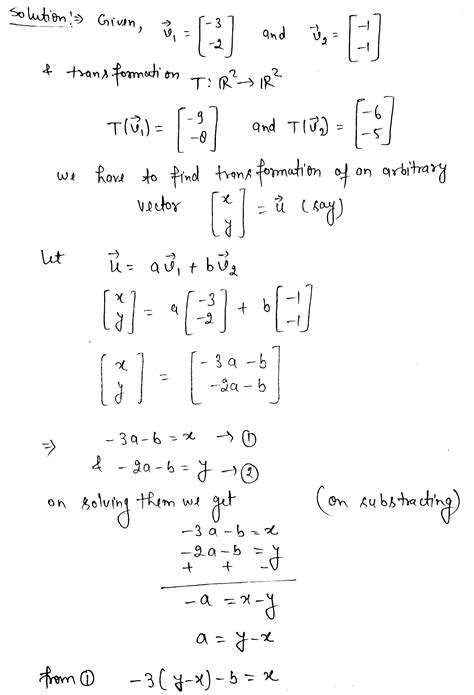 Solution:⇒ Given, v⃗₁ = [-3 -2] and v⃗₂ = [-1 -1]
& transformation T: ℝ² → ℝ²
T(v⃗₁) = [-9 -8] and T(v⃗₂) = [-6 -5]
we have to find transformation of an arbitrary
vector [x y] = u⃗ (say)
let u⃗ = av⃗₁ + bv⃗₂
[x y] = a[-3 -2] + b[-1 -1]
[x y] = [-3a-b -2a-b]
⇒ -3a-b = x → ①
& -2a-b = y → ②
on solving them we get (on substracting)
-3a-b = x
-2a-b = y
+ + -
-a = x-y
a = y-x
from ① -3(y-x)-b = x